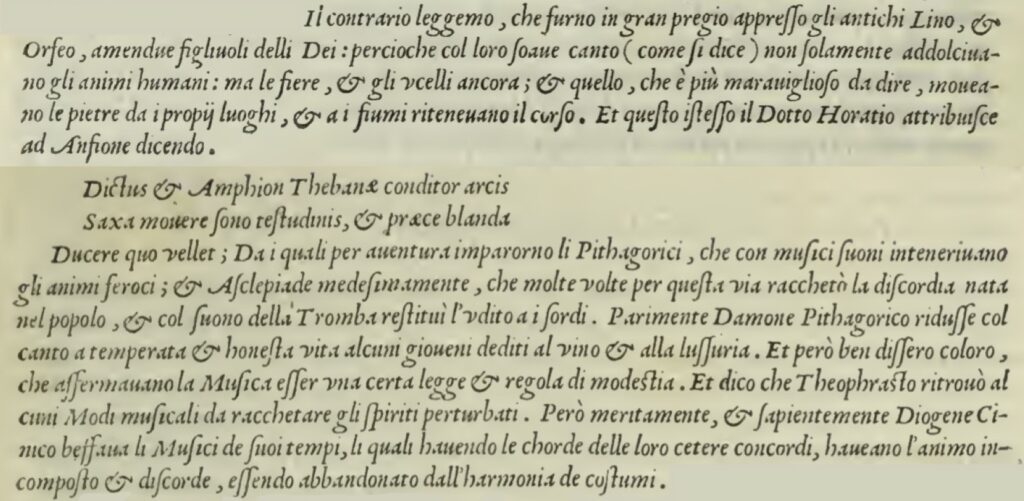 Il contrario leggemo, che furno in gran pregio appreſſo gli antichi Lino, &
Orfeo, amendue figliuoli delli Dei: percioche col loro ſoaue canto (come ſi dice) non ſolamente addolciua-
no gli animi humani: ma le fiere, & gli vcelli ancora; & quello, che è più marauiglioſo da dire, mouea-
no le pietre da i propij luoghi, & a i fiumi riteneuano il corſo. Et queſto iſteſſo il Dotto Horatio attribuiſce
ad Anfione dicendo.
Dictus & Amphion Thebanæ conditor arcis
Saxa mouere ſono teſtudinis, & præce blanda
Ducere quo vellet; Da i quali per auentura imparorno li Pithagorici, che con muſici ſuoni inteneriuano
gli animi feroci; & Aſclepiade medeſimamente, che molte volte per queſta via racchetò la diſcordia nata
nel popolo, & col ſuono della Tromba reſtituì l'vdito a i ſordi. Parimente Damone Pithagorico riduſſe col
canto a temperata & honeſta vita alcuni gioueni dediti al vino & alla luſſuria. Et però ben diſſero coloro,
che aſſermauano la Muſica eſſer vna certa legge & regola di modeſtia. Et dico che Theophraſto ritrouò al
cuni Modi muſicali da racchetare gli ſpiriti perturbati. Però meritamente, & ſapientemente Diogene Ci-
nico beffaua li Muſici de ſuoi tempi, li quali hauendo le chorde delle loro cetere concordi, haueano l'animo in-
compoſto & diſcorde, eſſendo abbandonato dall'harmonia de coſtumi.